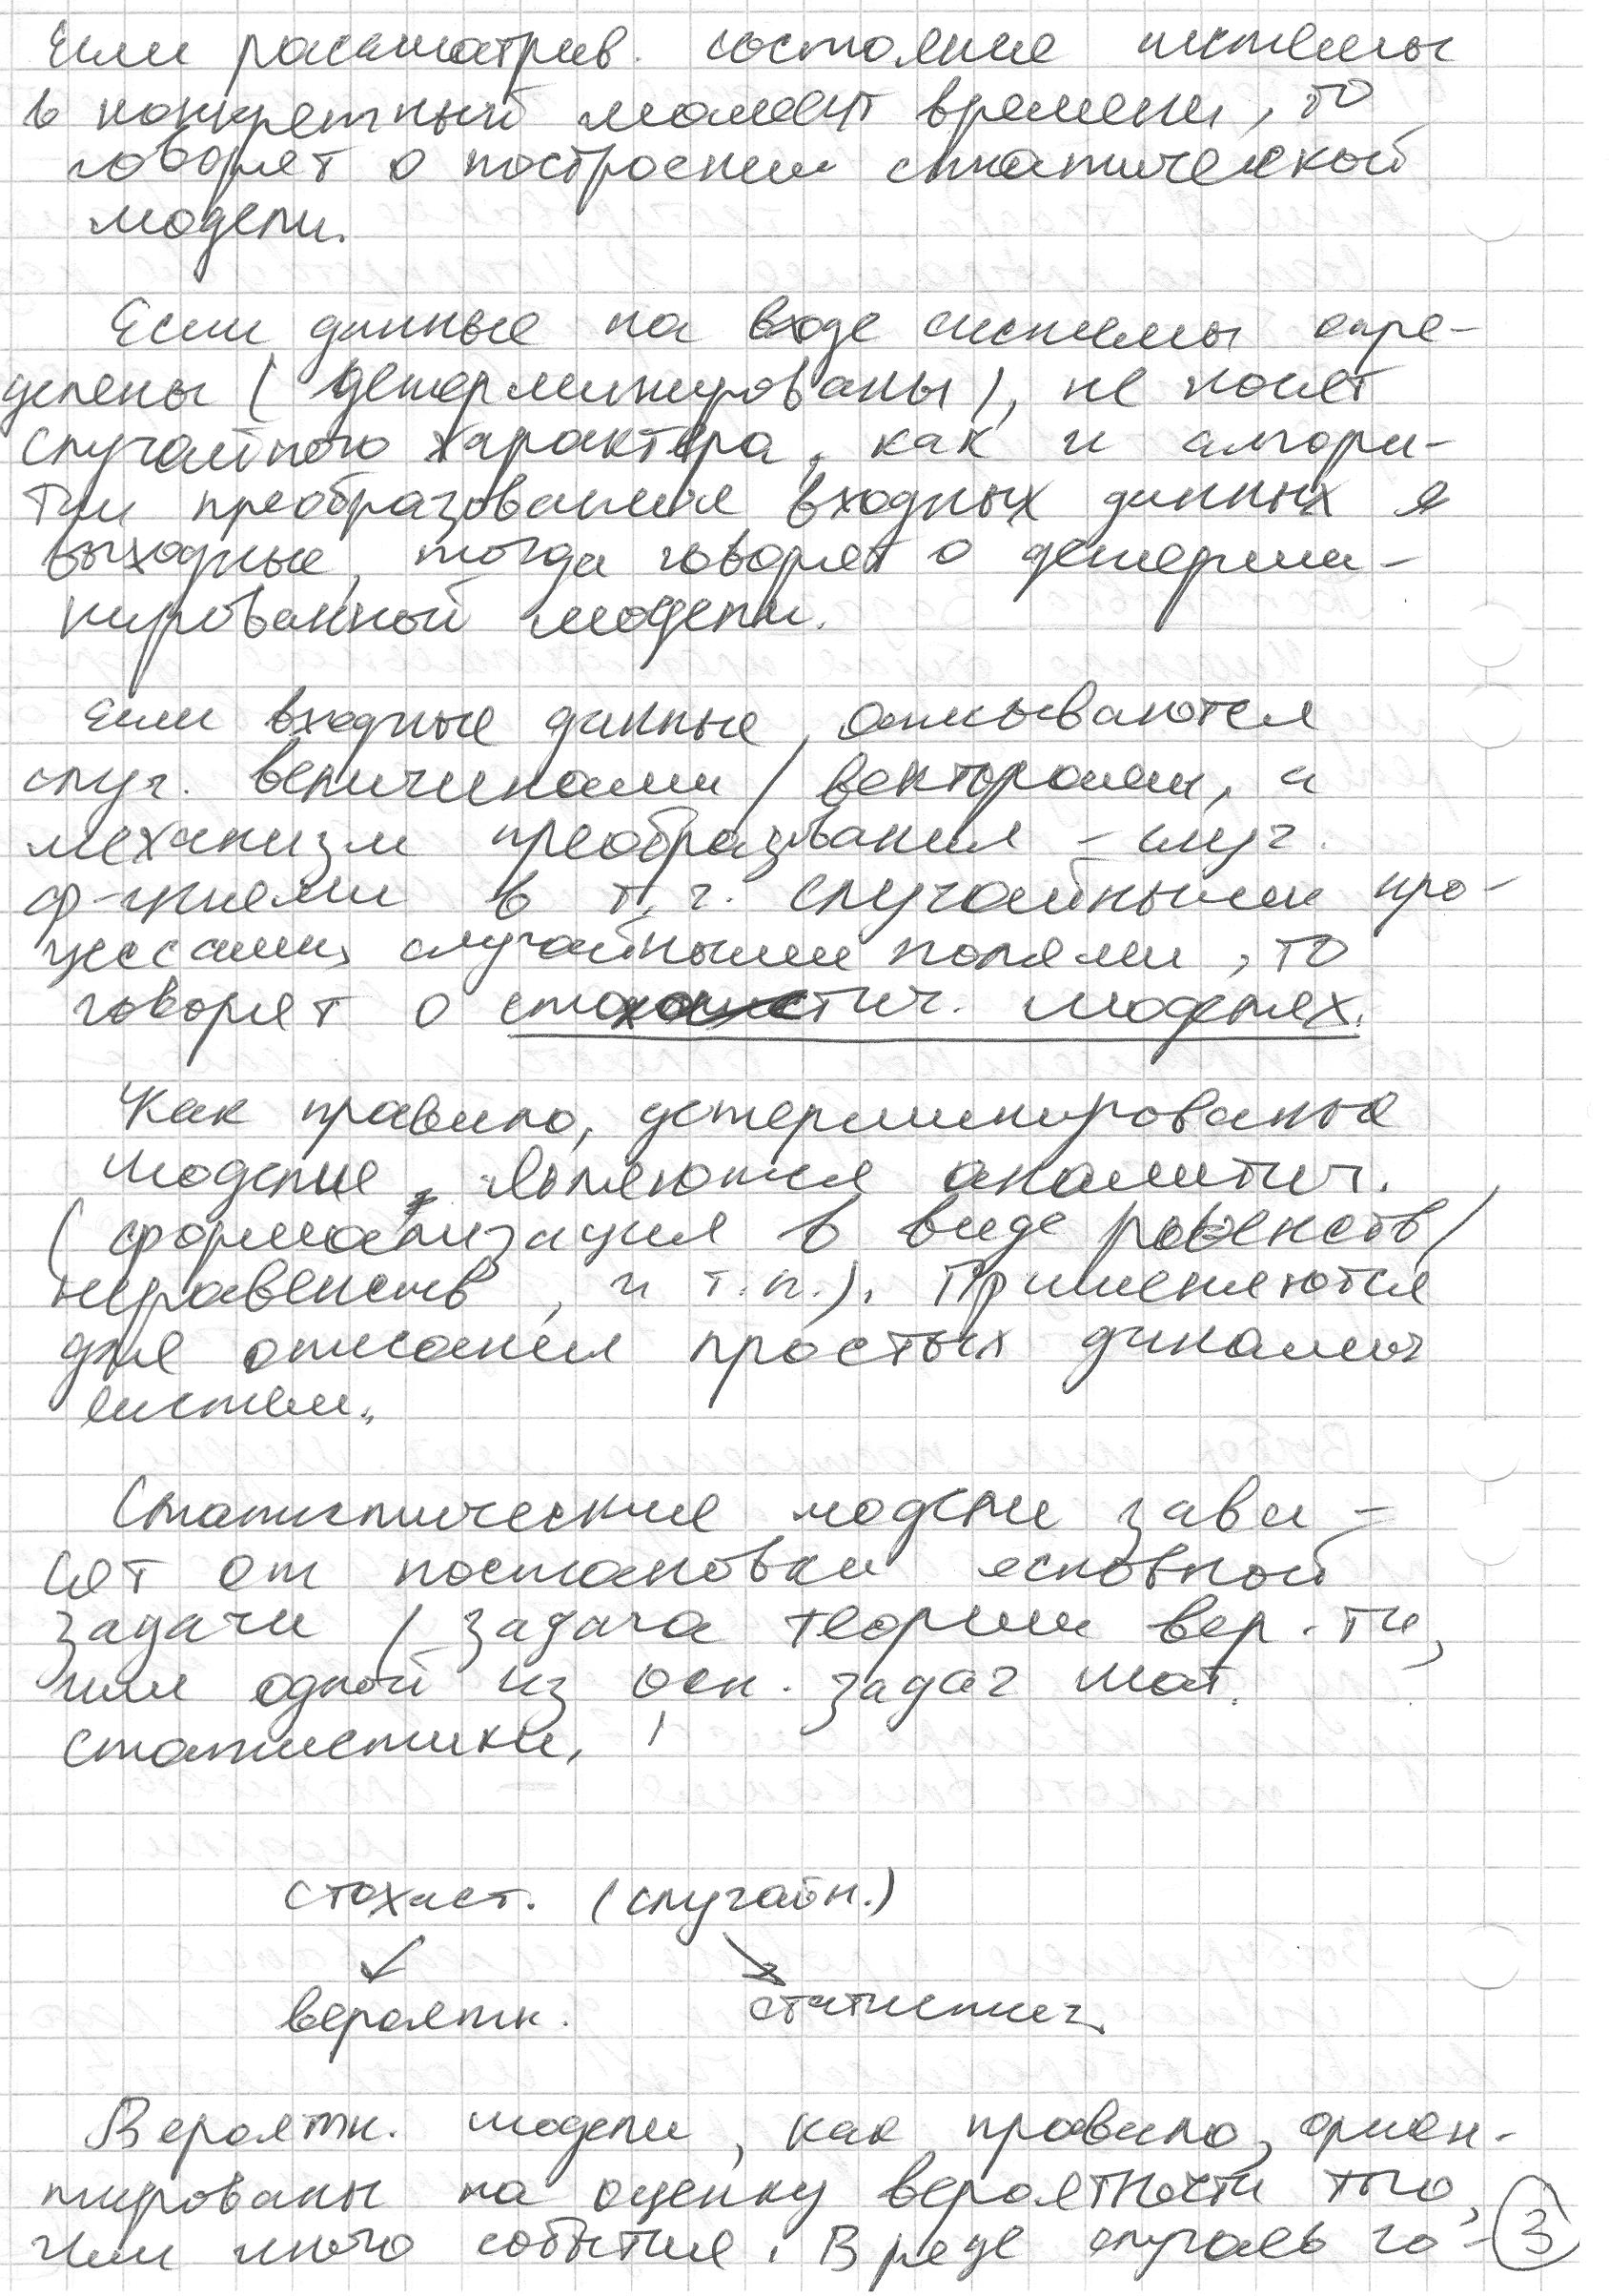 Если рассматрив. состояние системы
в конкретный момент времени, то
говорят о построении статической
модели.
Если данные на входе системы опре-
делены (детерминированы), не носят
случайного характера, как и алгори-
тм преобразования входных данных в
выходные, тогда говорят о детерми-
нированной модели.
Если входные данные описываются
случ. величинами / векторами, а
механизм преобразования - случ.
ф-циями в т.ч. случайными про-
цессами, случайными полями, то
говорят о стохастич. моделях.
Как правило, детерминированые
модели являются аналитич.
(формализация в виде равенств/
неравенств, и т.п.). Применяются
для описания простых динамич
систем.
Статистические модели зави-
сят от постановки основной
задачи (задача теории вер.-ти,
или одной из осн. задач мат.
статистики)
стохаст. (случайн.)
вероятн. статистич.
Вероятн. модели, как правило, ориен-
тированы на оценку вероятности того,
или иного события. В ряде случаев го-
3